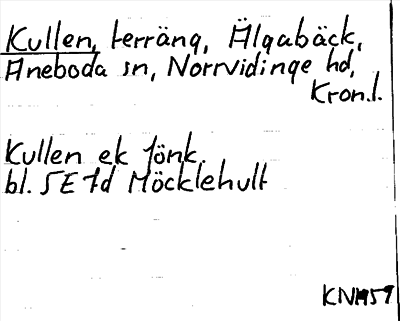 Kullen, terräng, Älgabäck,
Aneboda sn, Norrvidinge hd,
Kron.l.
Kullen ek Jönk.
bl. 5E7d Möcklehult
KNM59